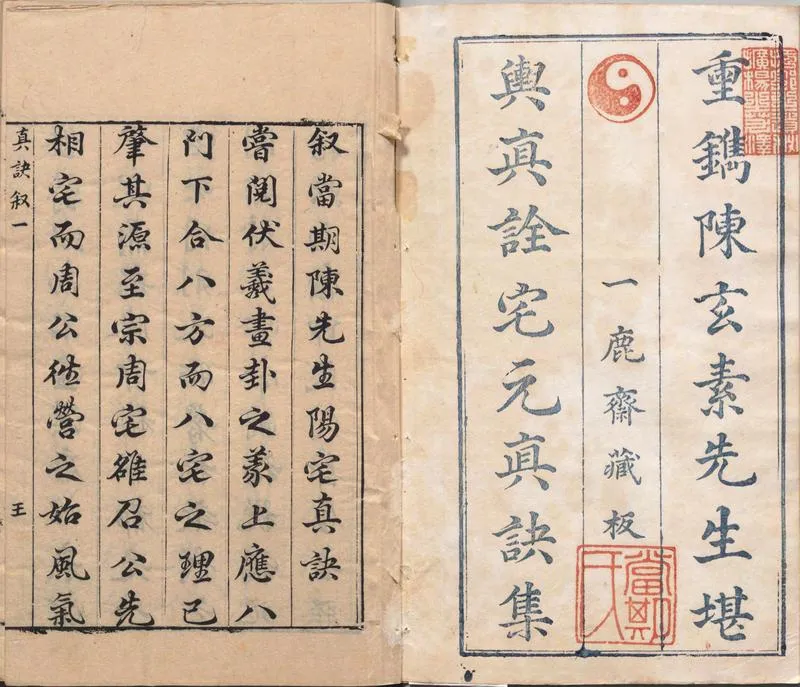 重鐫陳玄素先生堪
一鹿齋藏板
輿真詮宅元真訣集
當期
叙當期陳先生陽宅真訣
嘗閱伏羲畫卦之彖上應八
門下合八方而八宅之理已
肇其源至宗周宅雒召公先
相宅而周公徃營之始風氣
真訣叙一
王